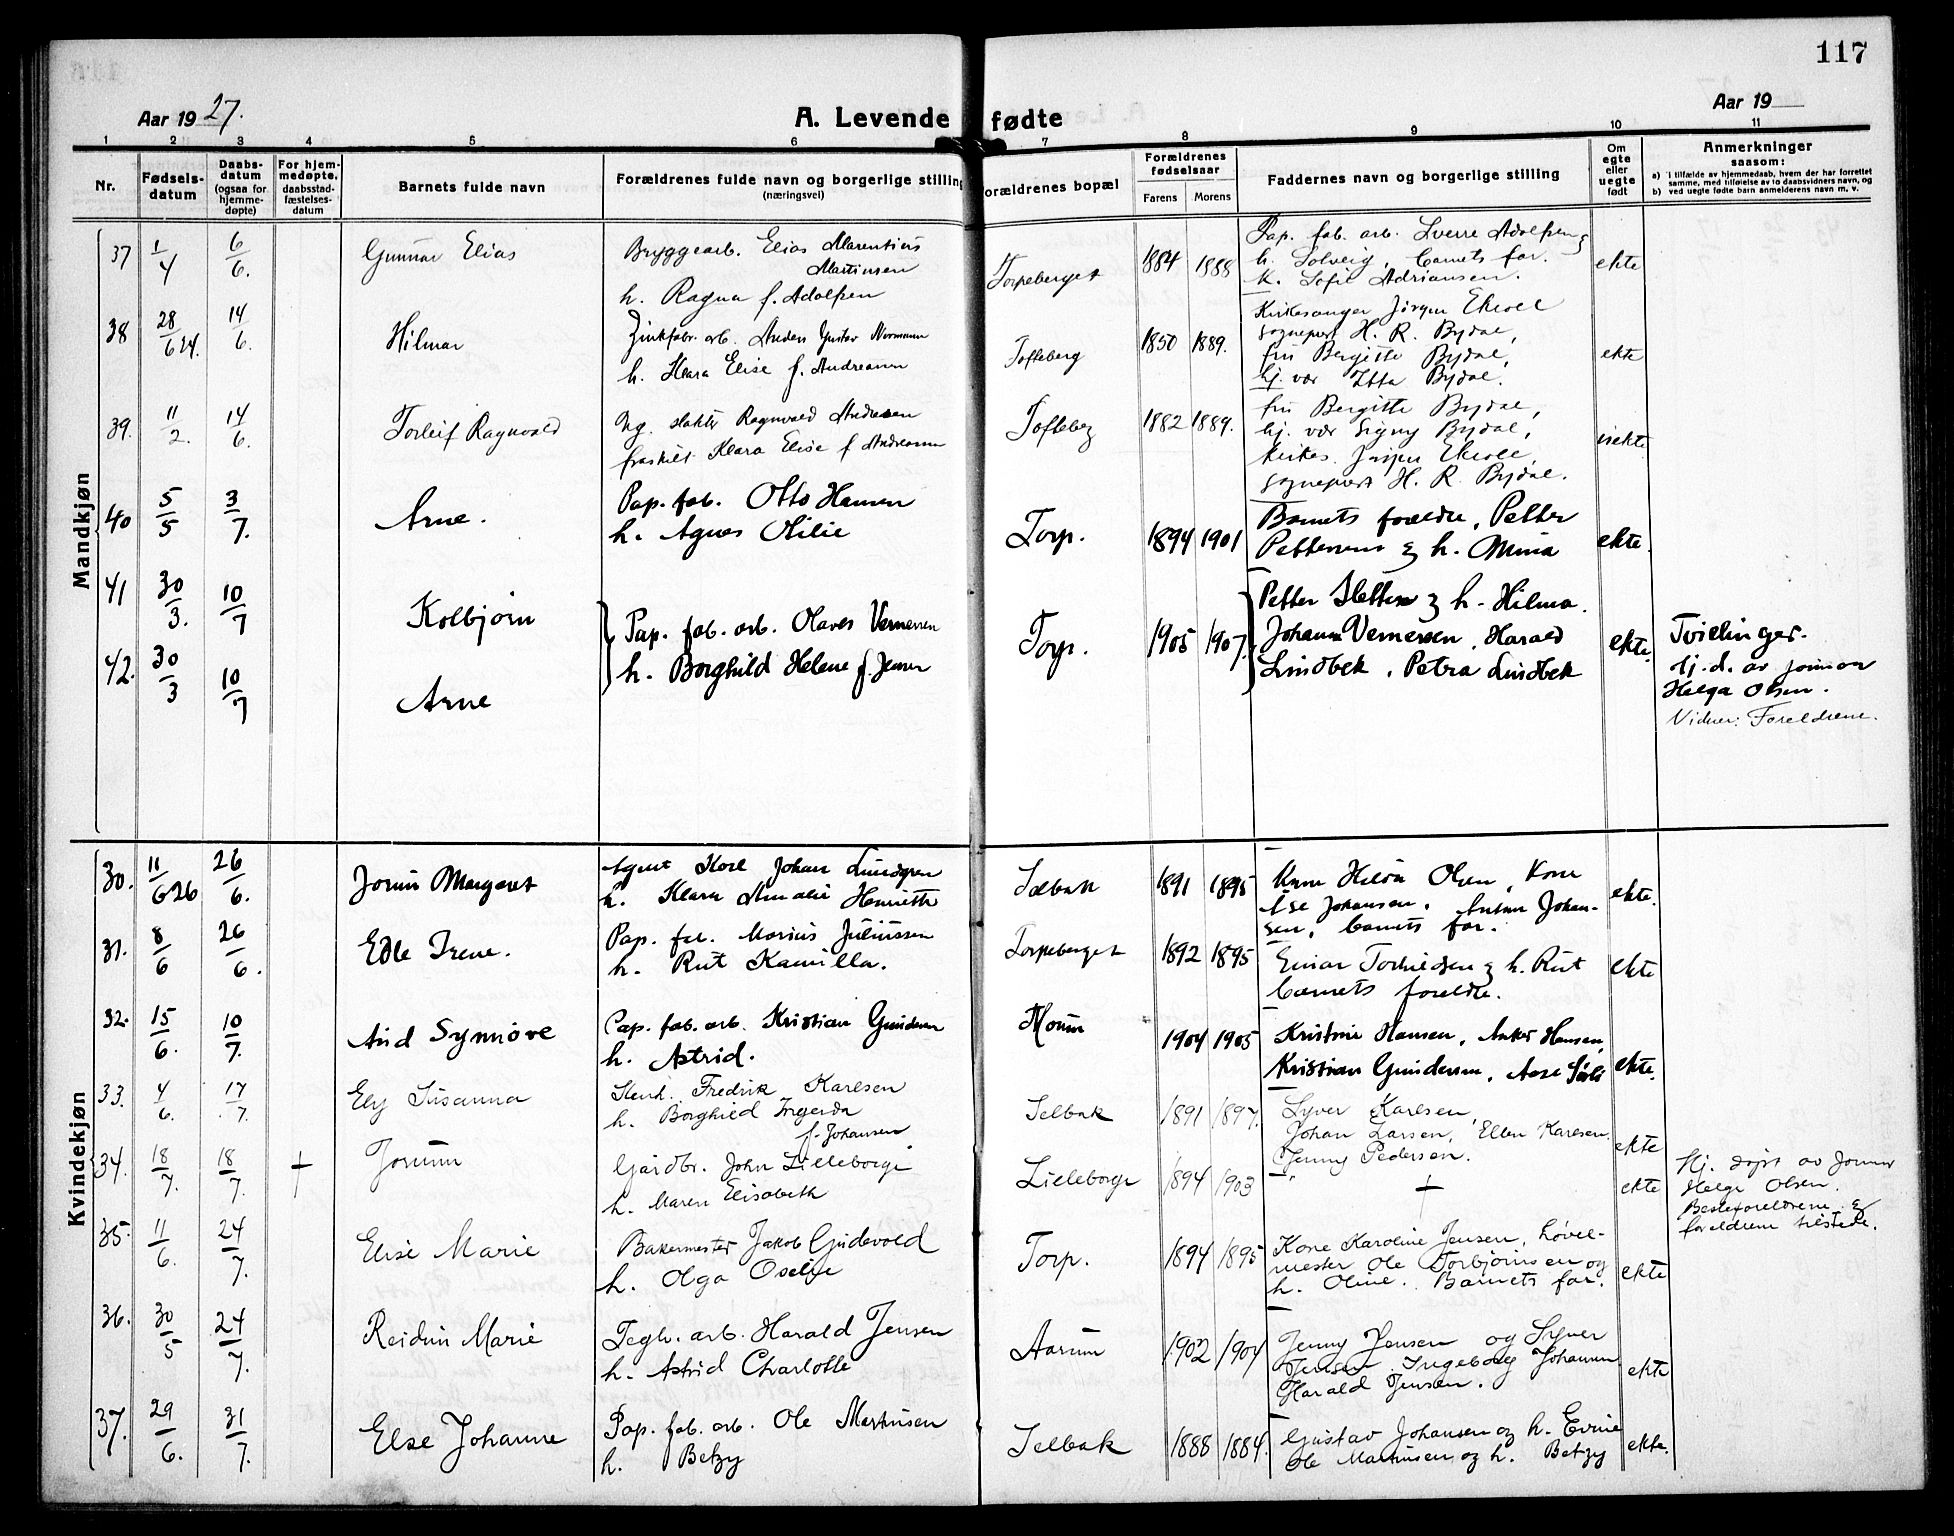 117
Aar 1927.
A. Levende fødte
Aar 19
1 2 3 4 5 6 7 8 9 10 11
Nr.
Fødsels-
datum
Daabs-
datum
(ogsaa for
hjemme-
døpte)
For hjem-
medøpte,
daabsstad-
fæstelses-
datum
Barnets fulde navn
Forældrenes fulde navn og borgerlige stilling
(næringsvei)
Forældrenes bopæl
Forældrenes
fødselsaar
Farens Morens
Faddernes navn og borgerlige stilling
Om
egte
eller
uegte
født
Anmerkninger
saasom:
a) i tilfælde av hjemmedaab, hvem der har forrettet
samme, med tilføielse av to daabsvidners navn, og
b) ved uegte fødte barn anmelderens navn m. v.
Mandkjøn
37 1/4 6/6. Gunnar Elias
Bryggearb. Elias Marentius
Martinsen
h. Ragna f. Adolfsen
Torpeberget 1884 1888
Pap. fab. arb. Sverre Adolfsen &
h. Solveig, barnets far.
K. Sofie Adriansen.
ekte
38 28/6 24. 14/6. Hilmar
Zinkfabr. arb. Anders Gustav Normann
h. Klara Elise f. Andreassen
Tofteberg 1850 1889.
Kirkesanger Jørgen Ekroll
sogneprest H. R. Bydal,
fru Bergitte Bydal,
hj. vær Bydal.
ekte
39. 11/2. 14/6. Torleif Ragnvald
Ug. slakter Ragnvald Andresen
fraskilt Klara Elise f Andreassen
Tofteberg 1882 1889.
fru Bergitte Bydal,
hj. vær Signy Bydal,
kirkes. Jørgen Ekroll,
sogneprest H. R. Bydal.
uekte
40 5/5 3/7. Arne.
Pap. fab. Otto Hansen
h. Agnes Otilie
Torp. 1894 1901
Barnets foreldre, Petter
Pettersen & h. Mina
ekte.
41 30/3. 10/7 Kolbjørn
Pap. fab. arb. Olaves Vernersen
h. Borghild Helene f. Jensen
Torp. 1905 1907.
Petter & h. Hilma.
Johannes Vernersen, Harald
Lindbek, Petra Lindbek
ekte.
Tvillinger.
hj. d. av jormor
Helga Olsen.
Vidner: Foreldrene.
42. 30/3 10/7 Arne
Kvindekjøn
30. 11/6 26 26/6. Jorun Margaret
Agent Karl Johan Lundgren
h. Klara Amalie Henriette
Selbak 1891 1895
Kone Hilda Olsen, Kone
Johansen, Anton Johan-
sen, barnets far.
ekte.
31. 8/6 26/6. Edle Irene.
Pap. fab. Marius Juliussen
h. Rut Kamilla.
Torpeberget 1892 1895
Einar Torkildsen & h. Rut
barnets foreldre.
ekte
32. 15/6. 10/7. Aud Synnøve
Pap. fab. arb. Kristian Gundersen
h. Astrid.
Moum 1904 1905
Kristine Hansen, Anker Hansen,
Kristian Gundersen, Aase
ekte.
33. 4/6. 17/7. Ely Susanna
Fredrik Karlsen
h. Borghild Ingerda
f. Johansen
Selbak 1891 1897.
Syver Karlsen,
Johan Larsen, Ellen Karlsen.
Jenny Pedersen.
ekte
34. 18/7. 18/7. + Jorunn
Gårdbr. John Lilleborge
h. Maren Elisabeth
Lilleborge 1894 1903
+
ekte
Hj. døpt av jormor
Helga Olsen.
Besteforeldrene &
foreldrene tilstede.
35. 11/6. 24/7. Elise Marie
Bakermester Jakob Gudevold
h. Olga Oselie
Torp. 1894 1895
Kone Karoline Jensen, høvel-
mester Ole Torbjørnsen og
h. Oline. Barnets far.
ekte
36. 30/5 24/7. Reidun Marie
Tegh. arb. Harald Jensen
h. Astrid Charlotte
Aarum 1902 1904
Jenny Jensen og Syver
Jensen. Ingeborg Johansen
Harald Jensen.
ekte
37. 29/6. 31/7. Else Johanne
Pap. fab. arb. Ole Martinsen
h. Betzy
Selbak 1888 1884.
Gustav Johansen og h. Evine
Ole Martinsen og h. Betzy
ekte.